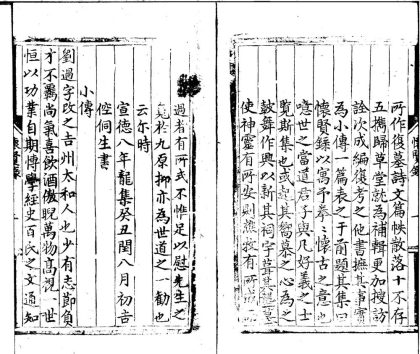 所作復墓詩文篇帙散落十不存
五擕歸草堂就為補輯更加搜訪
詮次成編復考之他書摭其事實
為小傳一篇表之于前題其集曰
懷賢録以寓予拳〻懷古之意也
噫世之當道君子與凡好義之士
覧斯集也或起其嚮慕之心為之
鼓舞作興以新其祠宇葺其墓
使神靈有所安則樵牧有所
過者有所式不惟足以慰先生之
於九原抑亦為世道之一勸也
云尔時
宣德八年龍集癸丑閏八月初吉
倥侗生書
小傳
劉過字改之吉州太和人也少有志節負
才不羈尚氣喜飲酒傲睨萬物高視一世
恒以功業自期博學經史百氏之文通知
懷賢録